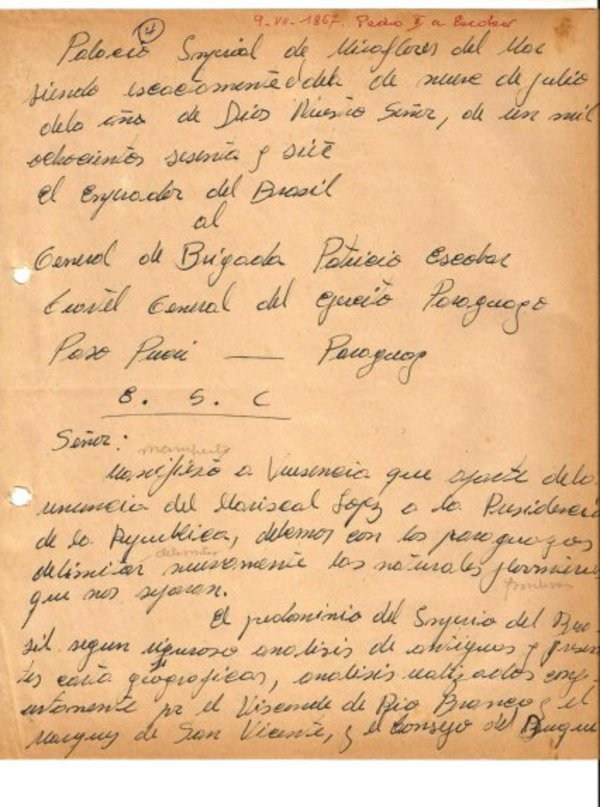 4
9-VII-1867. Pedro II a Escobar
Palacio Imperial de Miraflores del Mar
siendo escactamente del de nueve de julio
delo año de Dios Nuestro Señor, de un mil
ochocientos sesenta y siete
el Emperador del Brasil
al
General de Brigada Patricio Escobar
Cuartel General del Ejercito Paraguayo
Paso Pucú — Paraguay
E. S. C
Señor:
manifiesto
Manifiesto a Vuesencia que aparte dela
renuncia del Mariscal Lopez a la Presidencia
de la Republica, debemos con los paraguayos
delimitar
delimitar nuevamente las naturales
fronteras
que nos separan.
El predominio del Imperio del Bra-
sil segun riguroso analisis de antiguas y presen-
tes carta geograficas, analisis realizados conju-
ntamente por el Visconde de Rio Branco y el
Marques de San Vicente, y el consejo del Duque